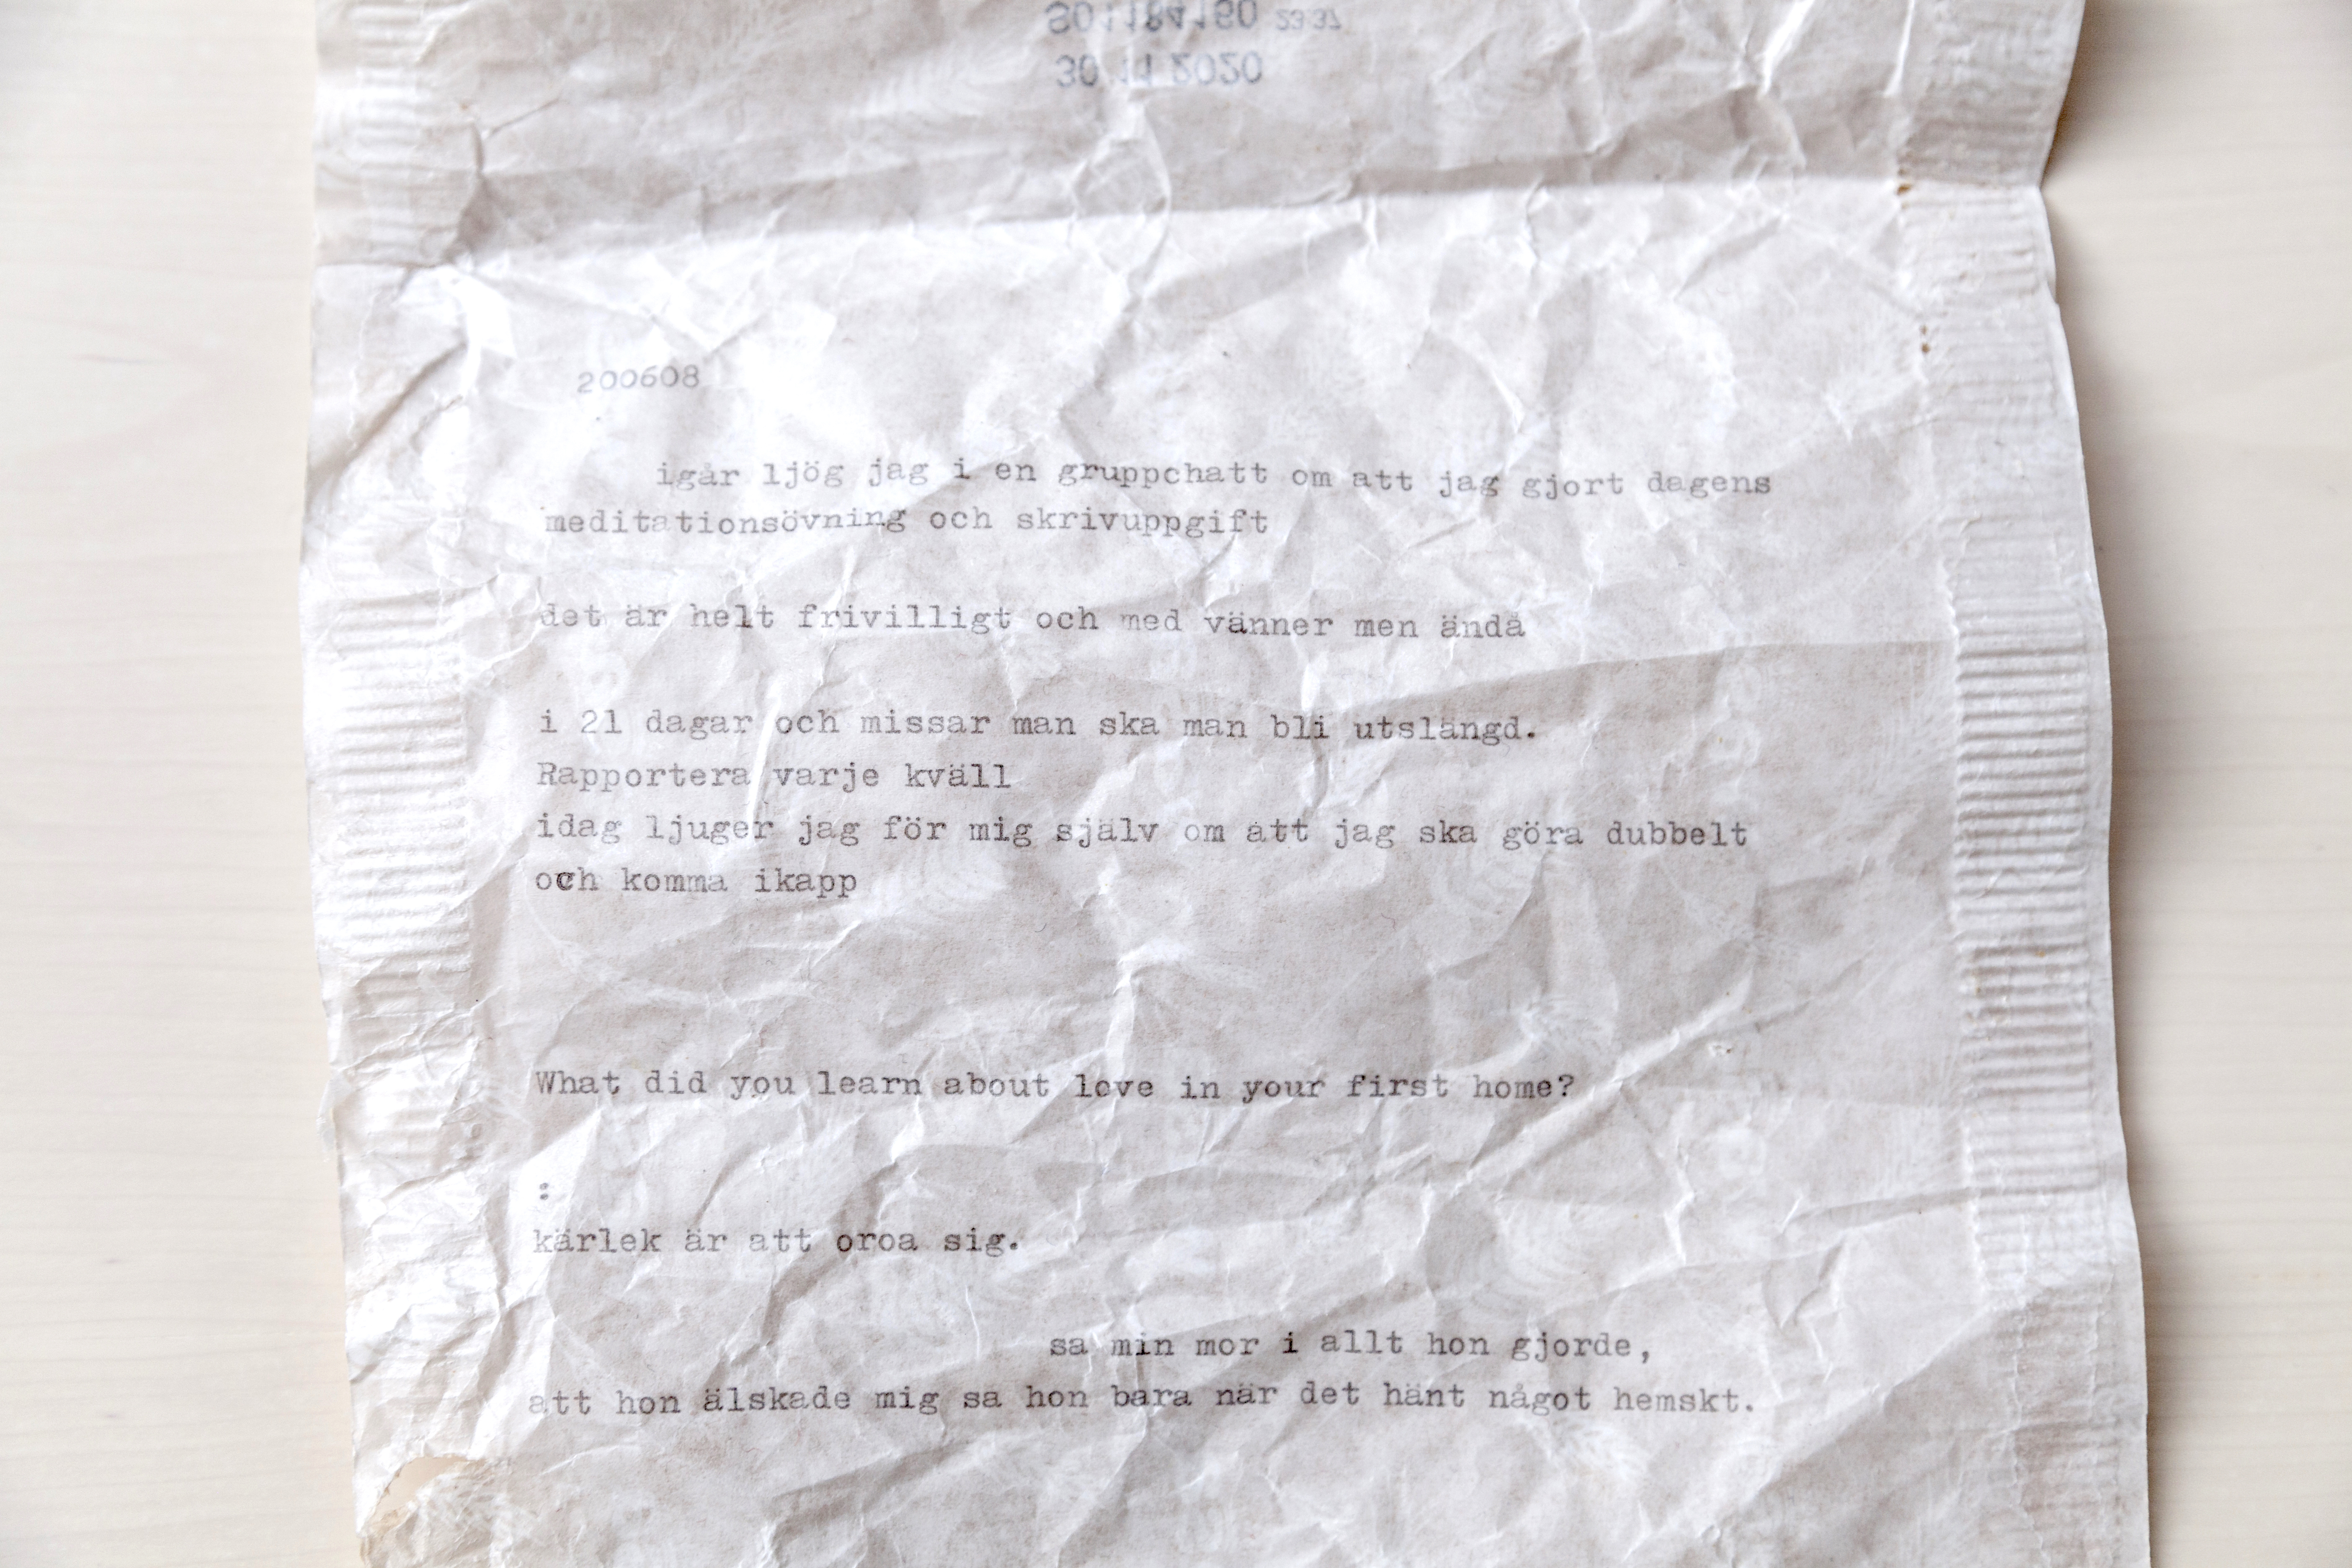 30 11 2020
S01184160 23:37
200608
igår ljög jag i en gruppchatt om att jag gjort dagens
meditationsövning och skrivuppgift
det är helt frivilligt och med vänner men ändå
i 21 dagar och missar man ska man bli utslängd.
Rapportera varje kväll
idag ljuger jag för mig själv om att jag ska göra dubbelt
och komma ikapp
What did you learn about love in your first home?
:
kärlek är att oroa sig.
sa min mor i allt hon gjorde,
att hon älskade mig sa hon bara när det hänt något hemskt.